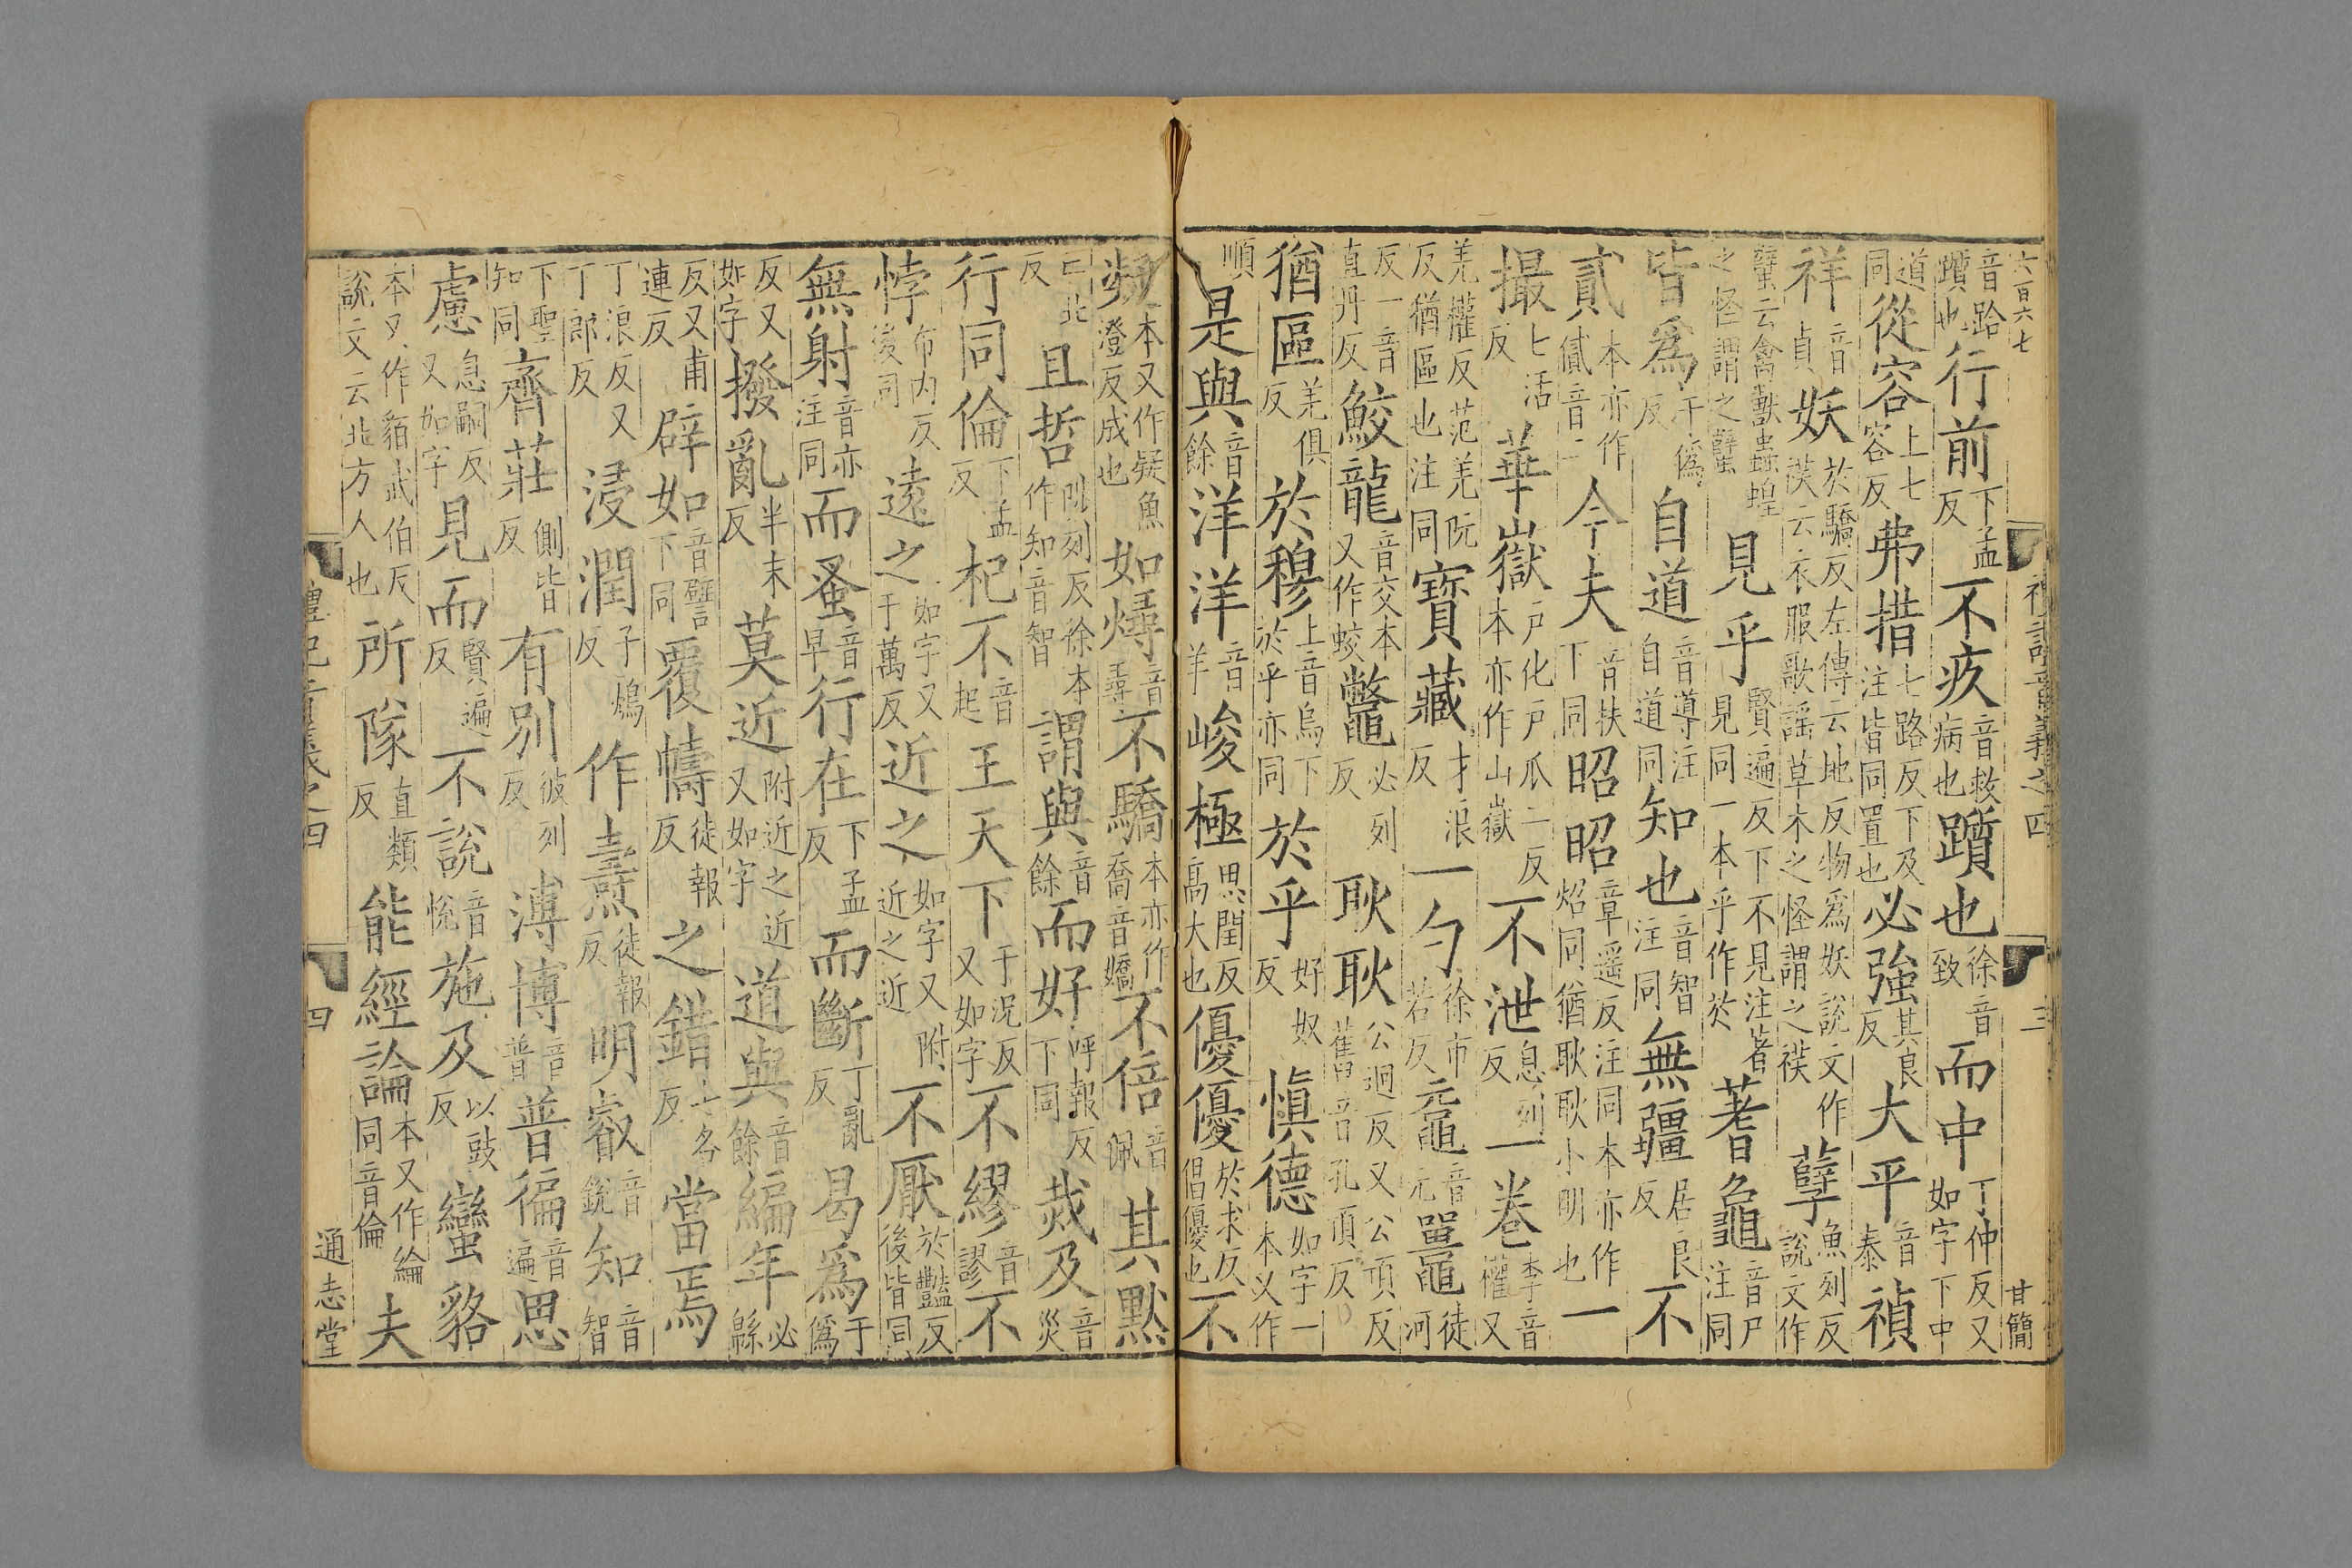 六百六七
禮記音義之四
三
甘簡
音路躓也行前下孟反不疚音救病也躓也徐音致而中丁仲反又如字下中
道同從容上七容反弗措七路反下及注皆同置也必強其良反大平音泰禎
祥音貞妖於驕反左傳云地反物爲妖說文作䄏云衣服歌謠草木之怪謂之䄏孽魚列反說文作
蠥云禽獸蟲蝗之怪謂之蠥見乎賢遍反下不見注著見同一本乎作於蓍龜音尸注同
皆爲于僞反自道音導注自道同知也音智注同無疆居良反不
貳本亦作貣音二今夫音扶下同昭昭章遥反注同本亦作炤同猶耿耿小明也一
撮七活反華嶽戶化戶瓜二反本亦作山嶽不泄息列反一卷李音權又
羌權反范羌阮反猶區也注同寶藏才浪反一勺徐市若反黿音元鼉徒河
反一音直丹反鮫龍音交本又作蛟鼈必列反耿耿公迥反又公頂反舊音孔頂反
猶區羌俱反於穆上音烏下於乎亦同於乎好奴反慎德如字一本又作
順是與音餘洋洋音羊峻極思閏反高大也優優於求反倡優也不
凝本又作疑魚澄反成也如燖音尋不驕本亦作喬音嬌不倍音佩其默
亡北反且哲陟列反徐本作知音智謂與音餘而好呼報反下同烖及音災
行同倫下孟反杞不音起王天下于況反又如字不繆音謬不
悖布內反後同遠之如字又于萬反近之如字又附近之近不厭於豔反後皆同
無射音亦注同而蚤音早行在下孟反而斷丁亂反曷爲于僞
反又如字撥亂半末反莫近附近之近又如字道與音餘編年必緜
反又甫連反辟如音譬下同覆幬徒報反之錯七各反當焉
丁浪反又丁郎反浸潤子鴆反作燾徒報反明叡音銳知音智
下聖知同齊莊側皆反有別彼列反溥博音普普徧音遍思
慮息嗣反又如字見而賢遍反不說音悅施及以豉反蠻貉
本又作貊武伯反說文云北方人也所隊直類反能經論本又作綸同音倫夫
禮記音義之四
四
通志堂